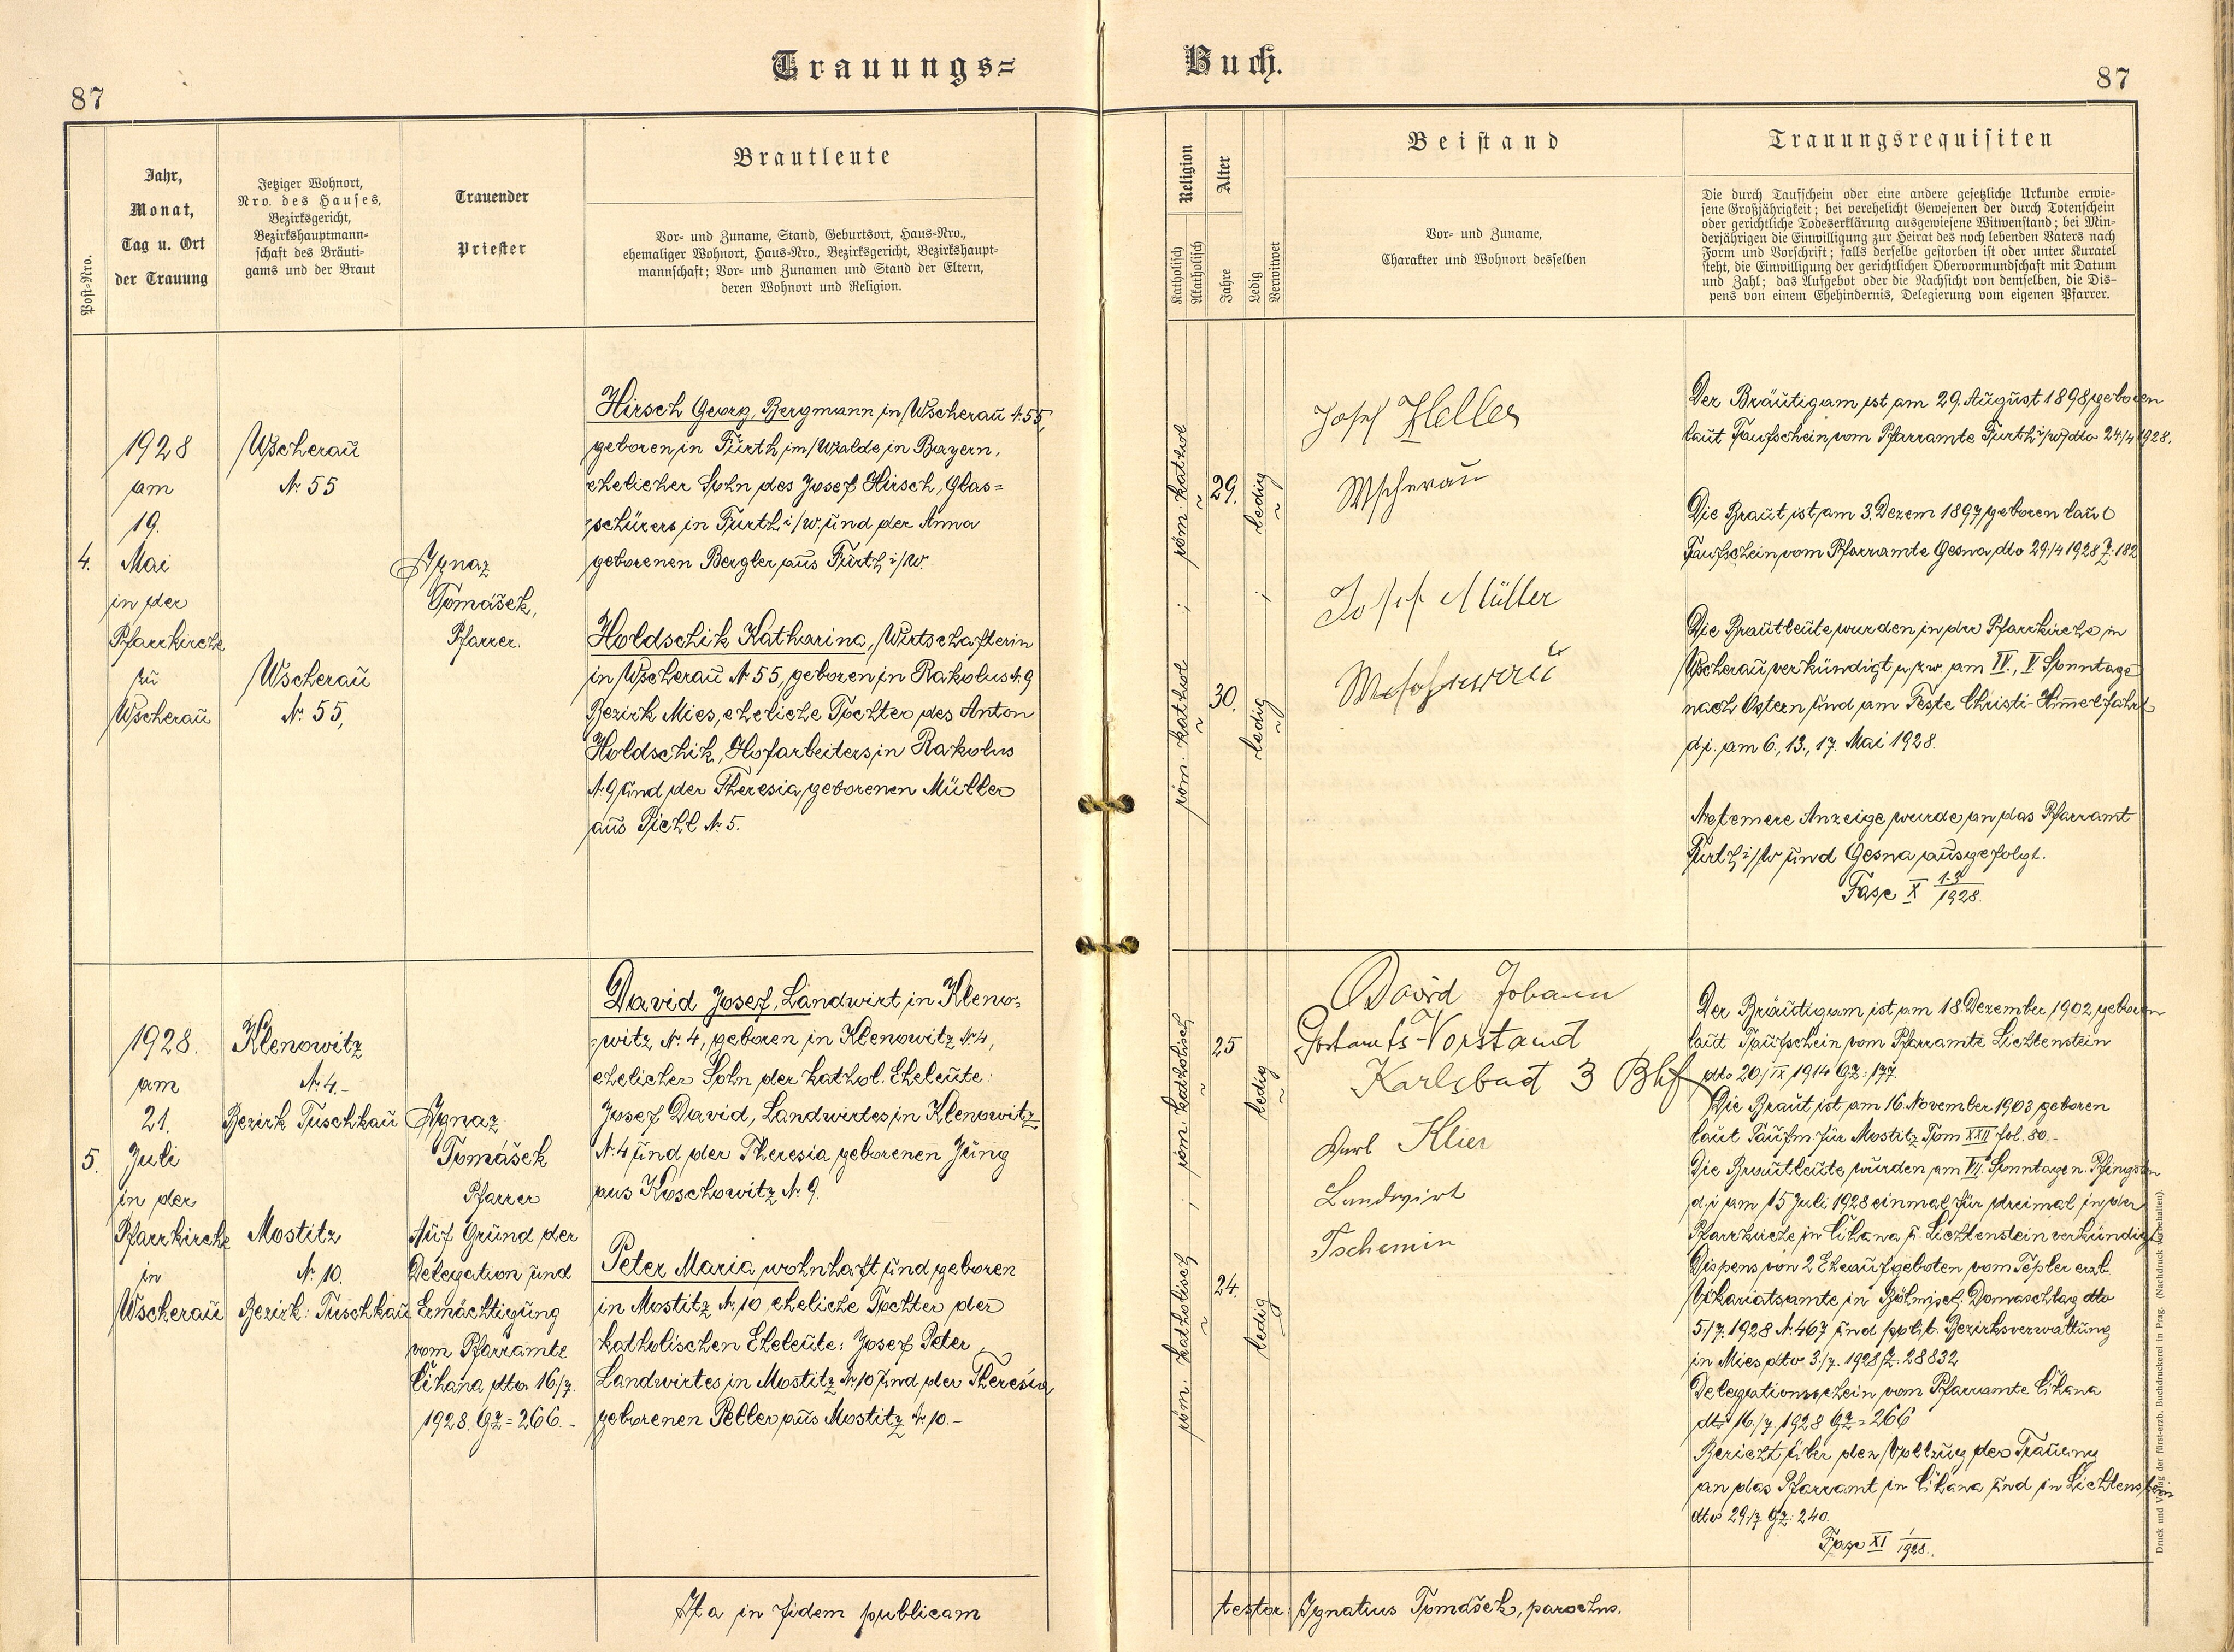 Trauungs=
Buch.
87
87
Post-Nro.
Jahr,
Monat,
Tag u. Ort
der Trauung
Jetziger Wohnort,
Nro. des Hauses,
Bezirksgericht,
Bezirkshauptmann-
schaft des Bräuti-
gams und der Braut
Trauender
Priester
Brautleute
Vor- und Zuname, Stand, Geburtsort, Haus-Nro.,
ehemaliger Wohnort, Haus-Nro., Bezirksgericht, Bezirkshaupt-
mannschaft; Vor- und Zunamen und Stand der Eltern,
deren Wohnort und Religion.
Religion
Katholisch
Akatholisch
Alter
Jahre
Ledig
Verwitwet
Beistand
Vor- und Zuname,
Charakter und Wohnort desselben
Trauungsrequisiten
Die durch Taufschein oder eine andere gesetzliche Urkunde erwie-
sene Großjährigkeit; bei verehelicht Gewesenen der durch Totenschein
oder gerichtliche Todeserklärung ausgewiesene Witwenstand; bei Min-
derjährigen die Einwilligung zur Heirat des noch lebenden Vaters nach
Form und Vorschrift; falls derselbe gestorben ist oder unter Kuratel
steht, die Einwilligung der gerichtlichen Obervormundschaft mit Datum
und Zahl; das Aufgebot oder die Nachsicht von demselben, die Dis-
pens von einem Ehehindernis, Delegierung vom eigenen Pfarrer.
4.
1928
am
19.
Mai
in der
Pfarrkirche
zu
Wscherau
Wscherau
N: 55
Wscherau
N: 55,
Ignaz
Tomášek,
Pfarrer.
Hirsch Georg, Bergmann in Wscherau N: 55,
geboren in Fürth im Walde in Bayern,
ehelicher Sohn des Josef Hirsch, Glas=
schürers in Furth i/w. und der Anna
geborenen Bergler aus Fürth i/W.
Holdschik Katharina, Wirtschafterin
in Wscherau N: 55, geboren in Rakolus N: 9
Bezirk Mies, eheliche Tochter des Anton
Holdschik, Hofarbeiters in Rakolus
N: 9 und der Theresia geborenen Müller
aus Pichl N: 5.
röm. kathol
29.
ledig
röm. kathol
30.
ledig
Josef Heller
Wscherau
Josef Müller
Wscherau
Der Bräutigam ist am 29. August 1898 geboren
laut Taufschein vom Pfarramte Fürth i/w dto 24/4 1928.
Die Braut ist am 3. Dezem 1897 geboren laut
Taufschein vom Pfarramte Gesna dto 29/4 1928 Z: 182
Die Brautleute wurden in der Pfarrkirche in
Wscherau verkündigt u. zw. am IV., V. Sonntage
nach Ostern und am Feste Christi-Himmelfahrt
d. i. am 6., 13., 17. Mai 1928.
Netemere Anzeige wurde an das Pfarramt
Furth i/W und Gesna ausgefolgt.
Fasc X 1-3/1928.
5.
1928.
am
21.
Juli
in der
Pfarrkirche
in
Wscherau
Klenowitz
N: 4.-
Bezirk Tuschkau
Mostitz
N: 10.
Bezirk: Tuschkau
Ignaz
Tomášek
Pfarrer
Auf Grund der
Delegation und
Ermächtigung
vom Pfarramte
Čihana dto. 16/7.
1928. GZ = 266. -
David Josef, Landwirt in Kleno-
witz N: 4, geboren in Klenowitz N: 4,
ehelicher Sohn der kathol. Eheleute:
Josef David, Landwirtes in Klenowitz
N: 4 und der Theresia geborenen Jung
aus Koschowitz N: 9.
Peter Maria wohnhaft und geboren
in Mostitz N: 10, eheliche Tochter der
katholischen Eheleute: Josef Peter
Landwirtes in Mostitz N: 10 und der Theresia
geborenen Peller aus Mostitz N: 10.-
röm. katholisch
25
ledig
röm. katholisch
24.
ledig
David Johann
Postamts-Vorstand
Karlsbad 3 Bhf
Karl Klier
Landwirt
Tschemin
Der Bräutigam ist am 18. Dezember 1902 geboren
laut Taufschein vom Pfarramte Lichtenstein
dto 20./IX 1914 GZ: 177.
Die Braut ist am 16. November 1903 geboren
laut Taufm für Mostitz Tom XXII fol. 80.-
Die Brautleute wurden am VII. Sonntage n. Pfingsten
d. i. am 15 Juli 1928 einmal für dreimal in der
Pfarrkirche in Čihana u. Lichtenstein verkündigt
Dispens von 2 Eheaufgeboten vom Tepler erzb.
Vikariatsamte in Böhmisch Domaschlag dto
5./7. 1928 N: 467 und polit. Bezirksverwaltung
in Mies dto 3./7. 1928 Z. 28832
Delegationsschein vom Pfarramte Čihana
dto 16./7. 1928 GZ = 266
Bericht über den Vollzug der Trauung
an das Pfarramt in Čihana und in Lichtenstein
dto 29./7 GZ: 240.
Fasc XI 1/1928.
Ita in fidem publicam
testor: Ignatius Tomášek, parochus.
Druck und Verlag der fürst-erzb. Buchdruckerei in Prag. (Nachdruck vorbehalten).